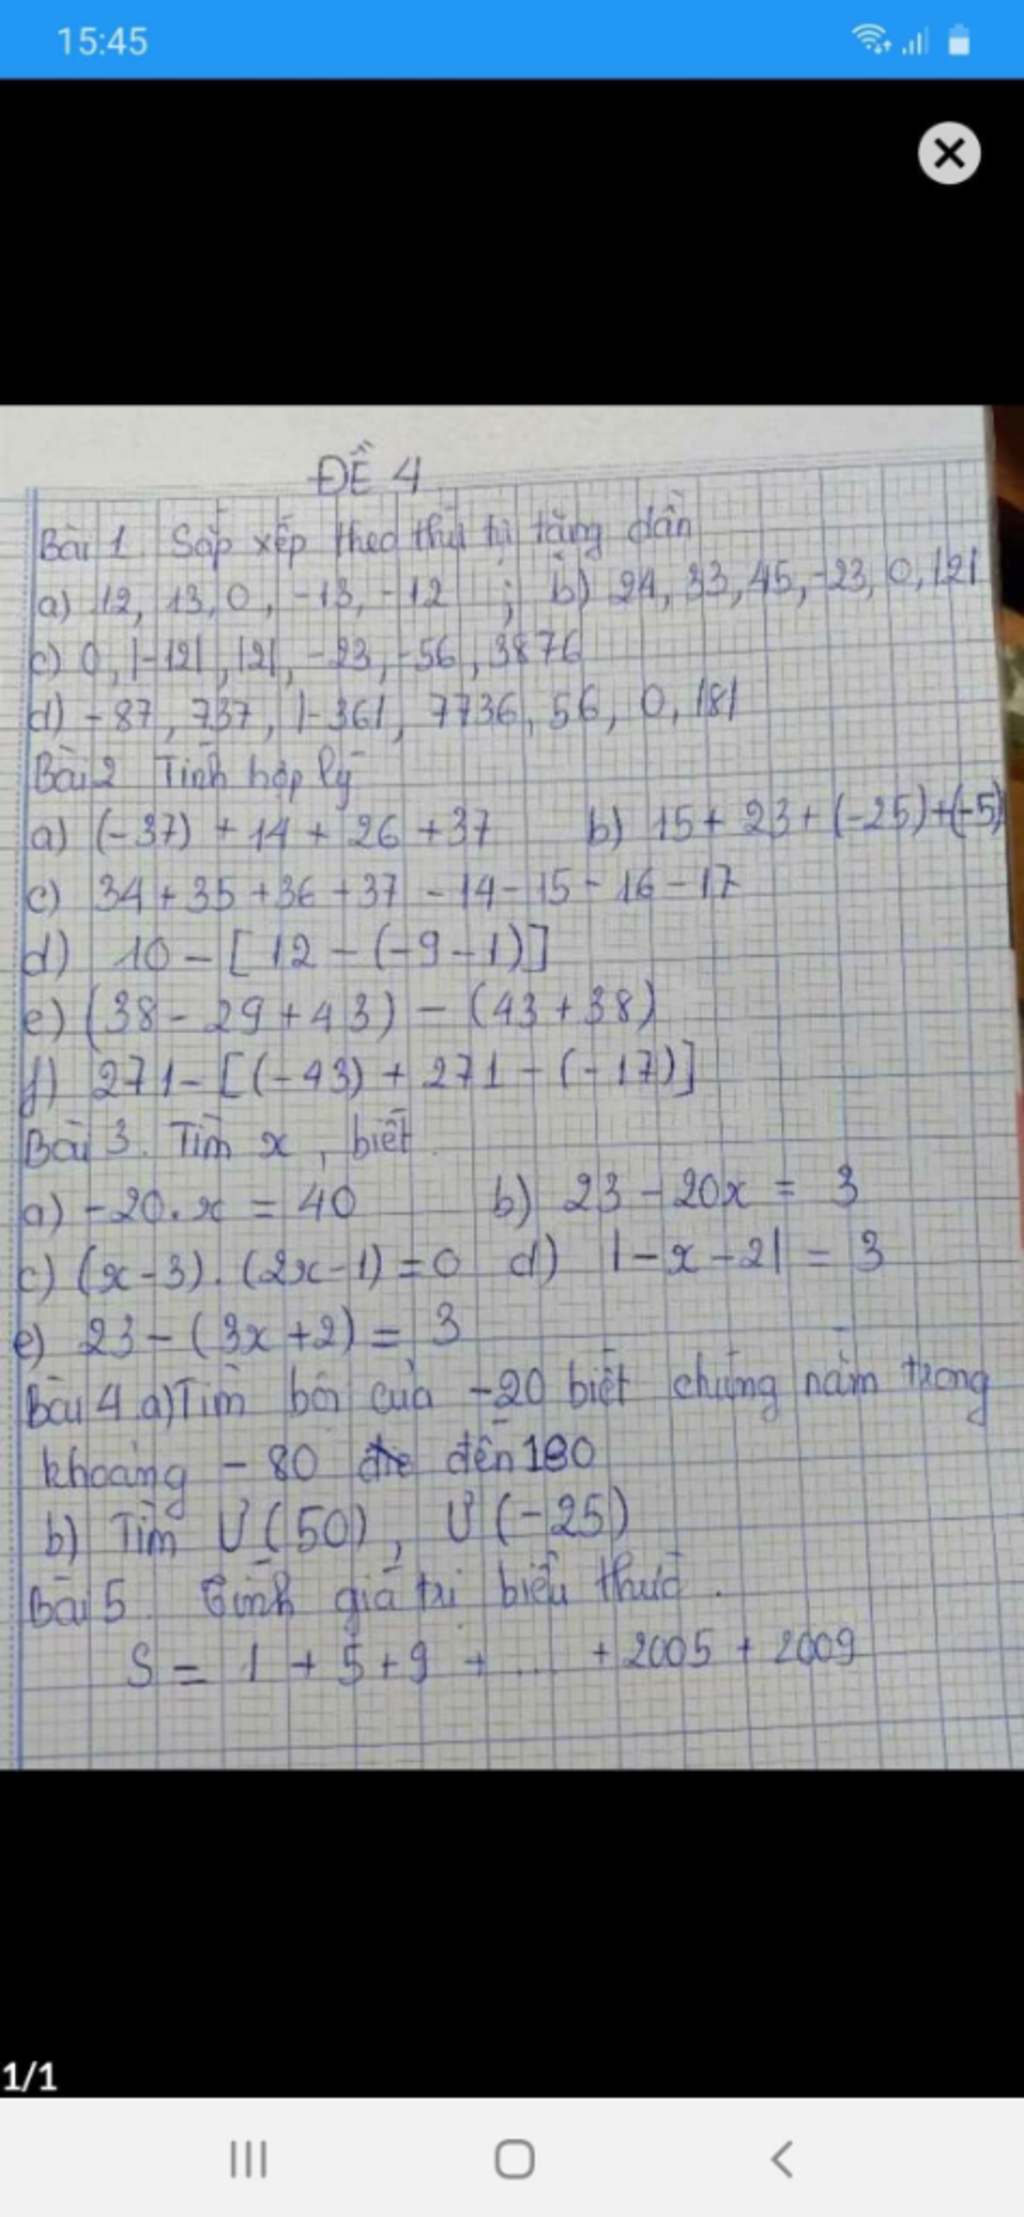 15:45
ĐỀ 4
Bài 1. Sắp xếp theo thứ tự tăng dần
a) 12, 13, 0, -13, -12 ; b) 24, 33, 45, -23, 0, |2|
c) 0, |-12|, |2|, -23, -56, 3876
d) -87, 737, |-36|, 7736, 56, 0, |8|
Bài 2 Tính hợp lý
a) (-37) + 14 + 26 + 37 b) 15 + 23 + (-25) + (-5)
c) 34 + 35 + 36 + 37 - 14 - 15 - 16 - 17
d) 10 - [12 - (-9 - 1)]
e) (38 - 29 + 43) - (43 + 38)
f) 271 - [(-43) + 271 - (-17)]
Bài 3. Tìm x, biết
a) -20.x = 40 b) 23 - 20x = 3
c) (x - 3).(2x - 1) = 0 d) |-x - 2| = 3
e) 23 - (3x + 2) = 3
Bài 4 a) Tìm bội của -20 biết chúng nằm trong
khoảng -80 đến 180
b) Tìm Ư(50), Ư(-25)
Bài 5. Tính giá trị biểu thức.
S = 1 + 5 + 9 + .... + 2005 + 2009
1/1